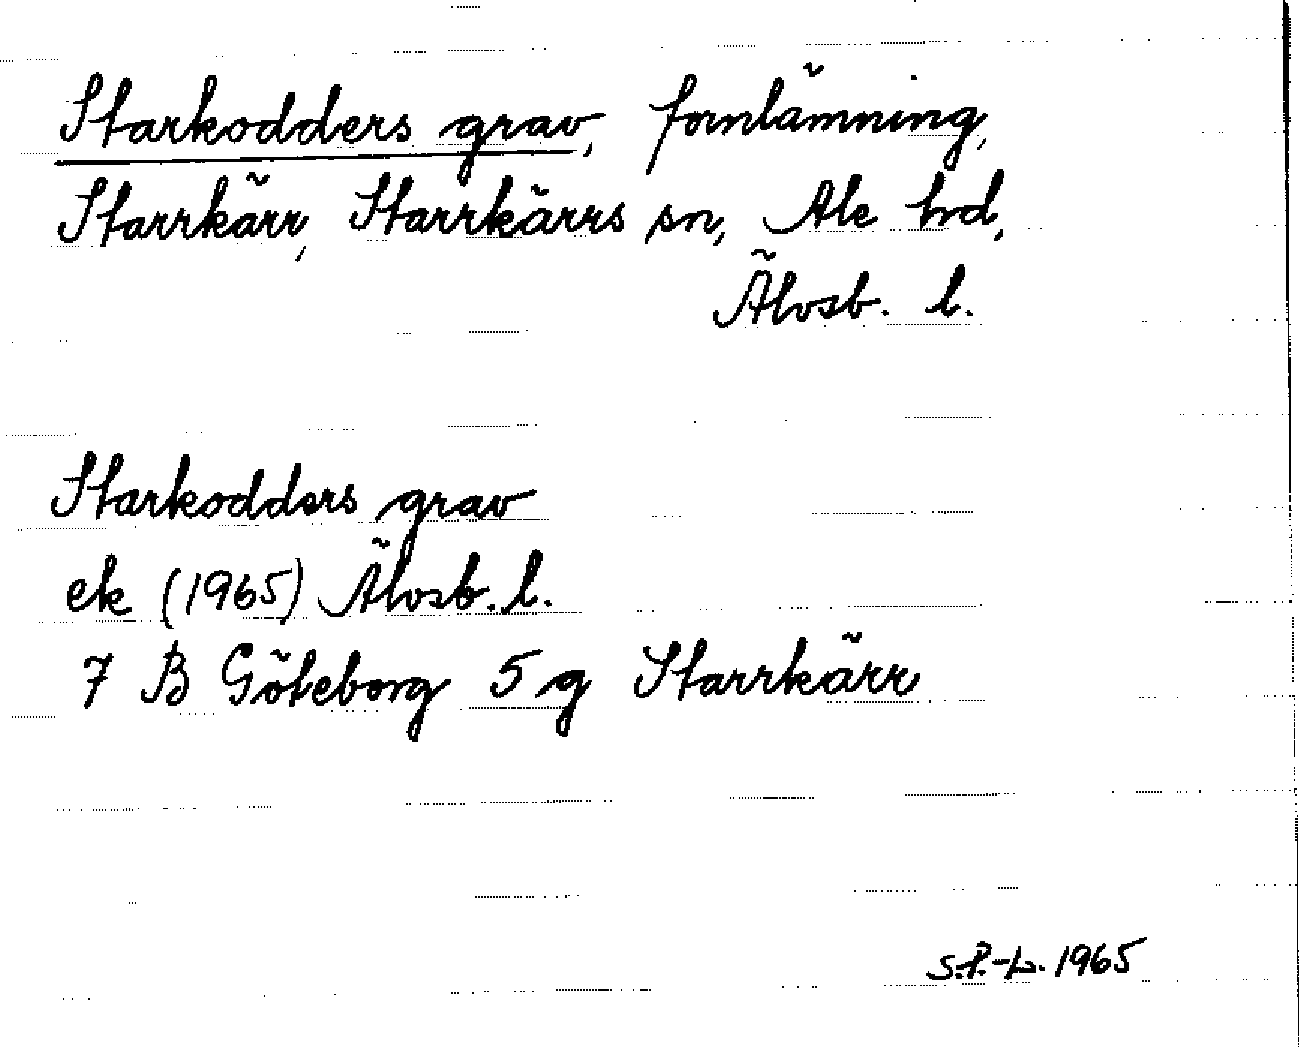 Starkodders grav, fornlämning,
Starrkärr, Starrkärrs sn, Ale hd,
Älvsb. l.
Starkodders grav
ek (1965) Älvsb. l.
7 B Göteborg 5 g Starrkärr
S.P.-L. 1965